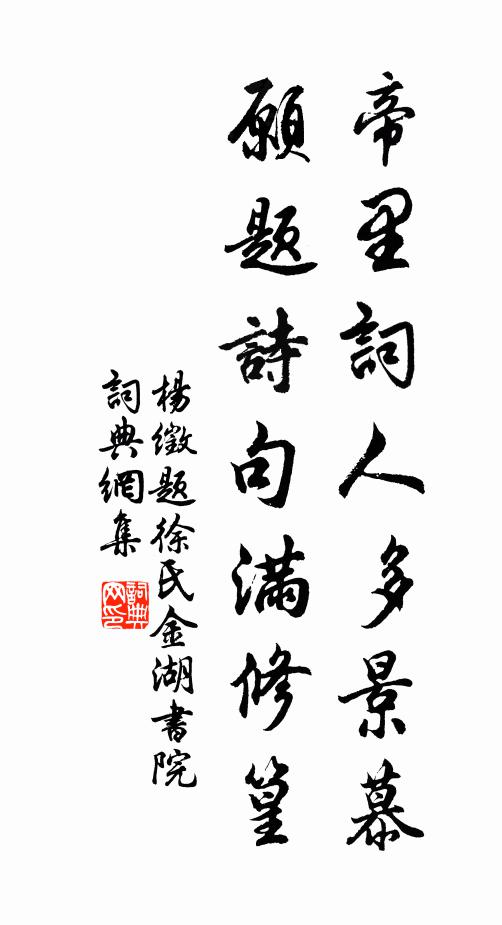 帝里詞人多景慕
願題詩句滿修篁
楊徵題徐氏金湖書院
詞典網集
詞典网印